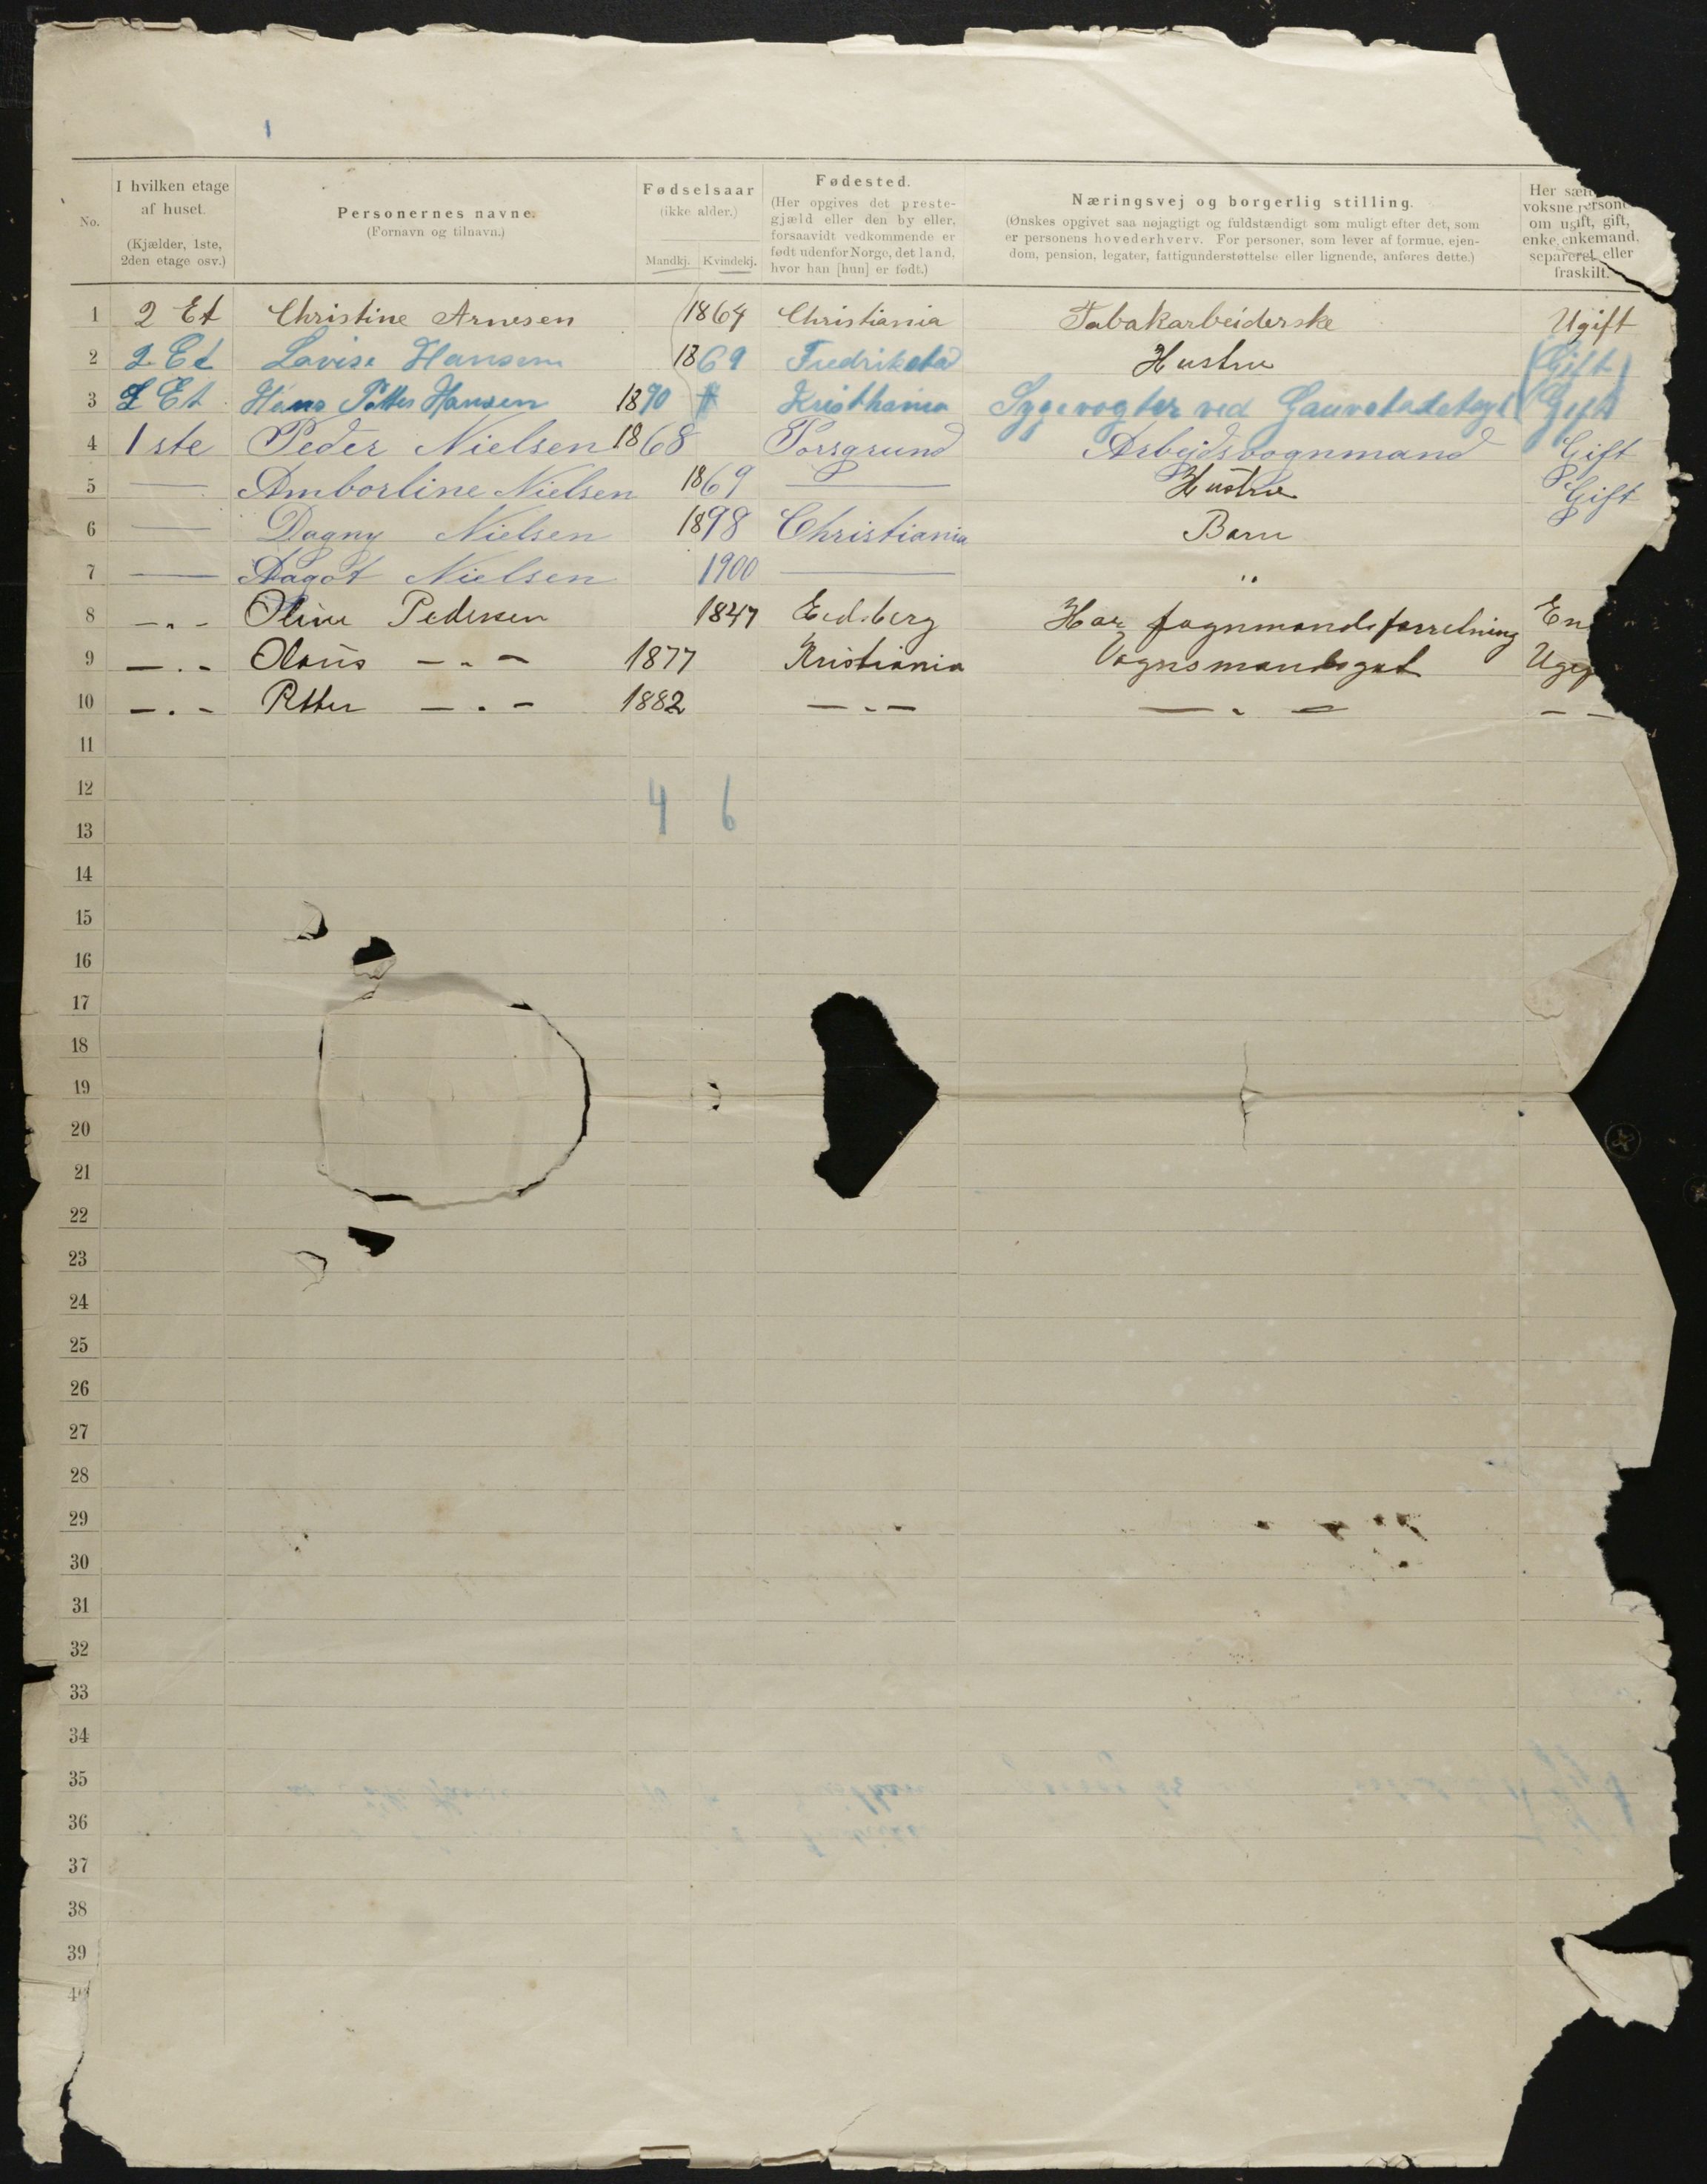 1
No.
I hvilken etage af huset.
(Kjælder, 1ste, 2den etage osv.)
Personernes navne.
(Fornavn og tilnavn.)
Fødselsaar
(ikke alder.)
Mandkj. Kvindekj.
Fødested.
(Her opgives det preste-
gjæld eller den by eller,
forsaavidt vedkommende er
født udenfor Norge, det land,
hvor han [hun] er født.)
Næringsvej og borgerlig stilling.
(Ønskes opgivet saa nøjagtigt og fuldstændigt som muligt efter det, som
er personens hovederhverv. For personer, som lever af formue, ejen-
dom, pension, legater, fattigunderstøttelse eller lignende, anføres dette.)
Her
voksne
om ugift, gift,
enke, enkemand,
separeret eller
fraskilt.
1 2 Et Christine Arnesen 1864 Christiania Tabakarbeiderske Ugift
2 2 Et Lovise Hansen 1869 Fredrikstad Hustru Gift
3 2 Et Hans Petter Hansen 1870 Kristhania Sygevogter ved Gift
4 1ste Peder Nielsen 1868 Porsgrund Arbejdsvognmand Gift
5 — Amborline Nielsen 1869 — Hustru Gift
6 — Dagny Nielsen 1898 Christiania Barn
7 — Aagot Nielsen 1900 — "
8 — " — Oline Pedersen 1847 Eidsberg Har fognmandsforretning En
9 — " — Olaus — " — 1877 Kristiania Vognsmandsgut Ugif
10 — " — Petter — " — 1882 — " — — " — — —
11
12
4 6
13
14
15
16
17
18
19
20
21
22
23
24
25
26
27
28
29
30
31
32
33
34
35
36
37
38
39
40